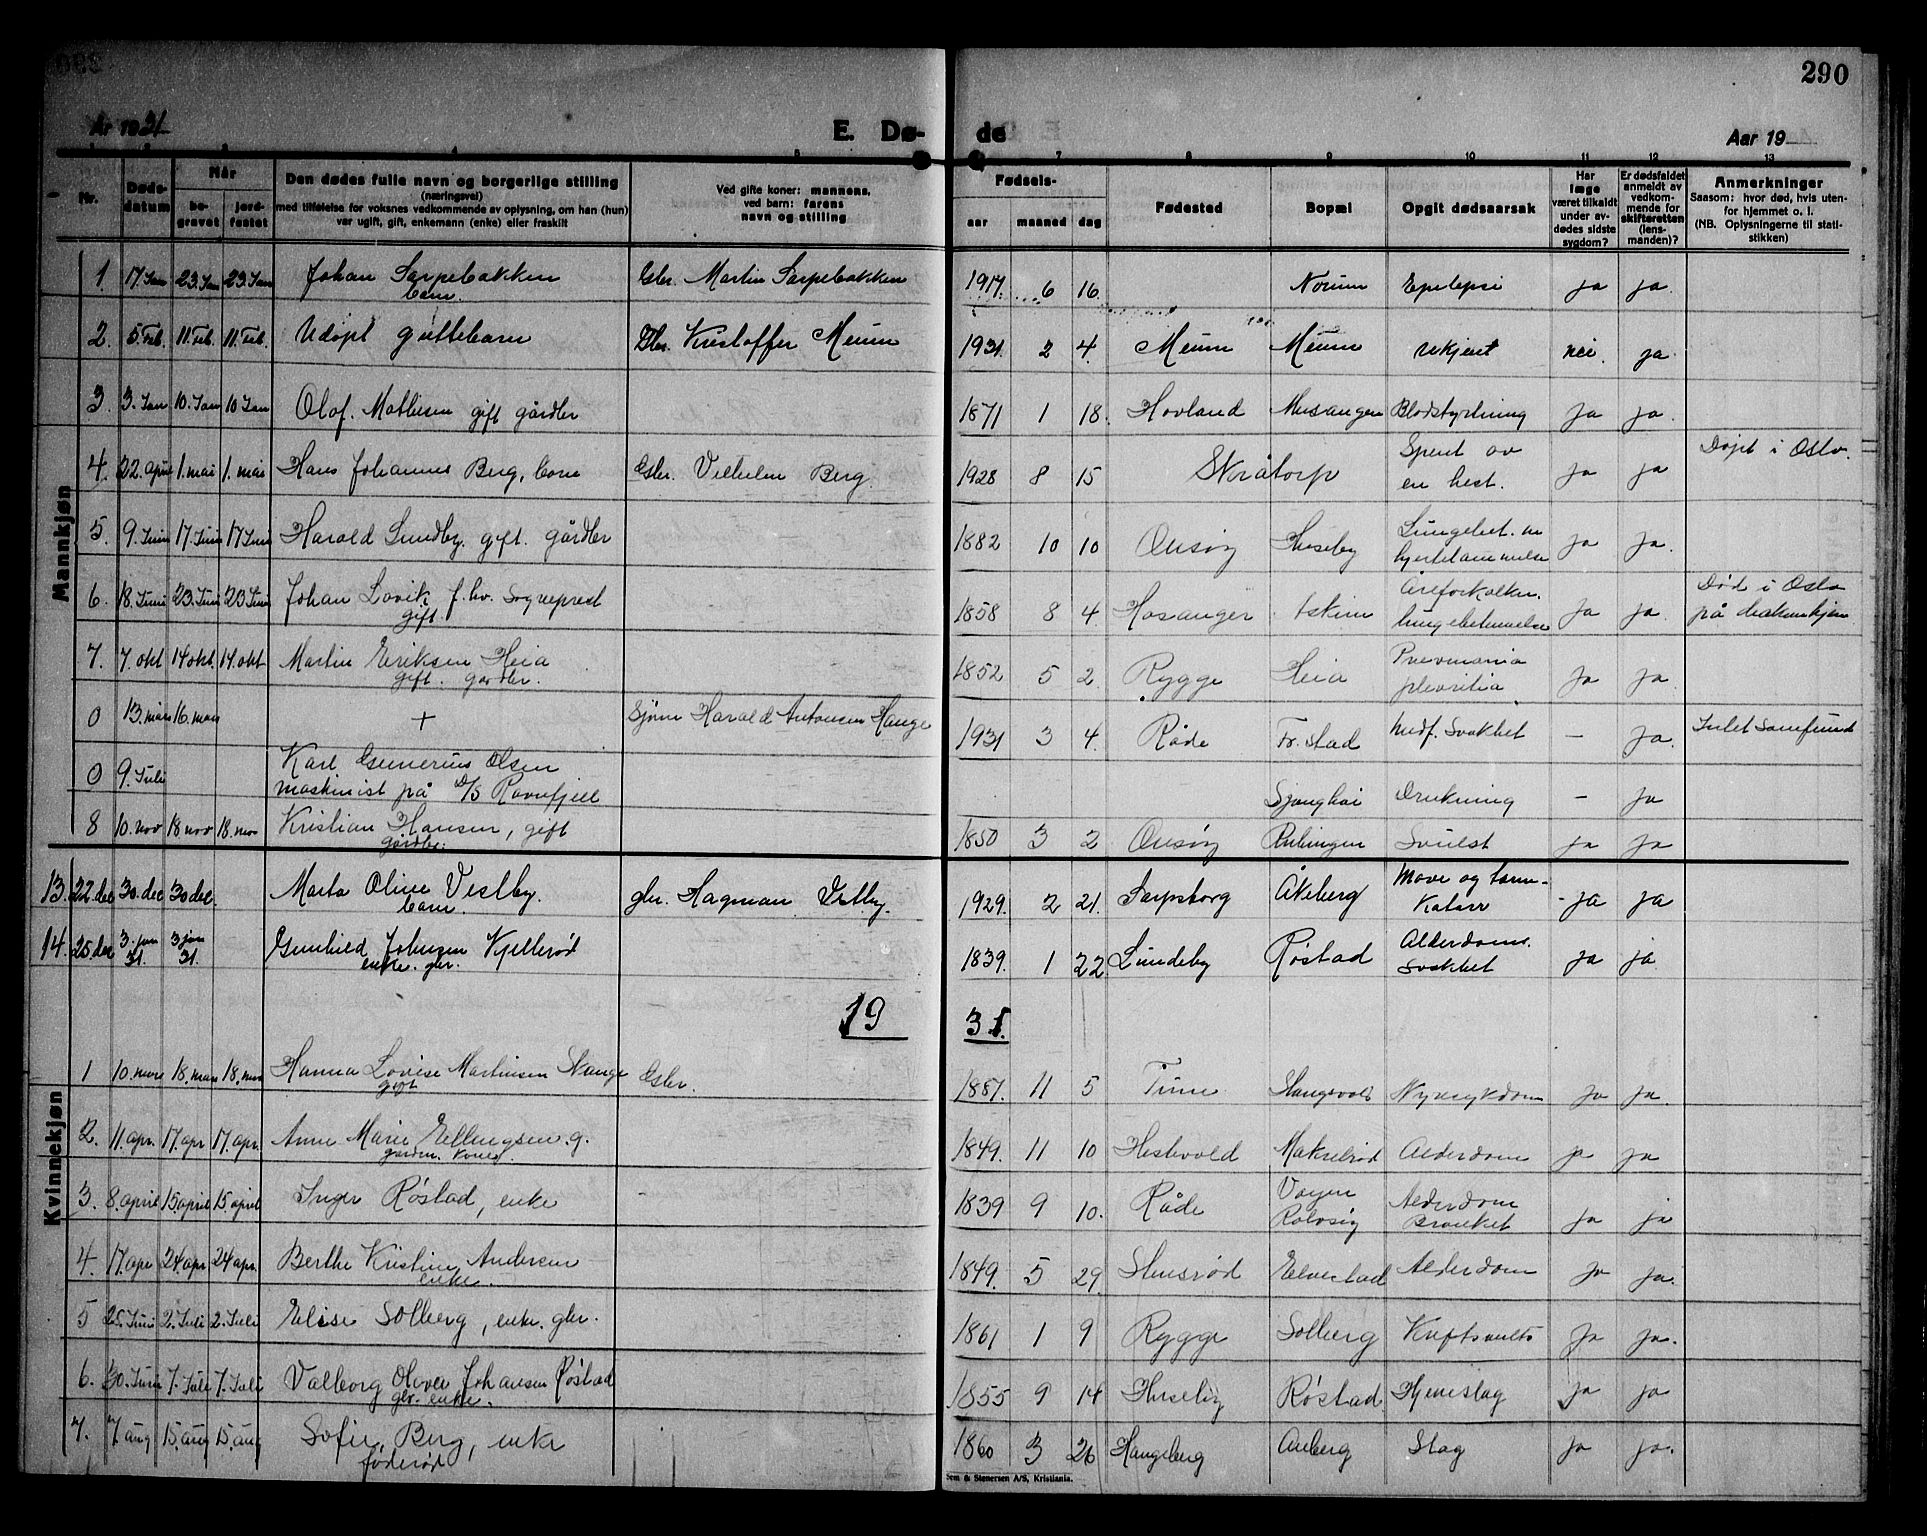 290
År 1931
E. Dø- de
Aar 19
Nr.
Døds-datum
Når
be-gravet
jord-festet
Den dødes fulle navn og borgerlige stilling
(næringsvei)
med tilføielse for voksnes vedkommende av oplysning, om han (hun)
var ugift, gift, enkemann (enke) eller fraskilt
Ved gifte koner: mannens,
ved barn: farens
navn og stilling
Fødsels-
aar maaned dag
7 8 9 10 11 12 13
Fødested
Bopæl
Opgit dødsaarsak
Har
læge
været tilkaldt
under av-
dødes sidste
sygdom?
Er dødsfaldet
anmeldt av
vedkom-
mende for
skifteretten
(lens-
manden)?
Anmerkninger
Saasom: hvor død, hvis uten-
for hjemmet o. l.
(NB. Oplysningerne til stati-
stikken)
Mannkjøn
1 17. Jan 23. Jan 23. Jan Johan Sarpebakken Gbr. Martin Sarpebakken 1917. 6 16. Norum Epelepsi ja ja.
barn.
2. 5. Feb. 11. Feb. 11. Feb. Udøpt guttebarn Gbr. Kristoffer Meum 1931. 2 4. Meum Meum ukjent nei. ja
3. 3. Jan 10. Jan 10 Jan Olaf. Mathisen gift gårdbr 1871 1 18. Hovland Musangen Blodstyrtning ja ja.
4. 22. april 1. mai 1. mai Hans Johannes Berg, barn Gbr. Vilhelm Berg. 1928 8 15 Skråtorp Spent av
en hest. ja ja Døpt i Oslo.
5. 9. Juni 17. Juni 17 Juni Harald Sundby. gift. gårdbr 1882 10 10 Onsøy Huseby Lungebet. m
hjertelammelse ja ja.
6. 18. Juni 23. Juni 23 Juni Johan Lavik f. hv. Sogneprest
gift. 1858 8 4. Hosanger Askim Åreforkalkn.
lungebetennelse ja ja Død i Oslo
på diakonhjem
7. 7. okt 14 okt. 14. okt Martin Eriksen Heia
gift. gårdbr. 1852 5 2. Rygge Heia Pnevmonia
plevritia ja ja.
0 13. mars 16. mars + Sjøm Harald Antonsen Hauge 1931 3 4. Råde Fr. stad medf. Svakhet - ja. Intet Samfund
0 9. Juli Karl Gunerius Olsen
maskinist på D/S Ravnefjell Sjanghai Drukning - ja
8 10. nov 18 nov 18. nov Kristian Hansen, gift
gårdbr. 1850 3 2 Onsøy Svulst ja ja
13. 22. des 30. dec 30 dec. Marta Oline Vestby.
barn. gbr. Hagman Vestby. 1929. 2 21. Sarpsborg Åkeberg Mave og tarm-
Katarr - ja ja
14. 25 dec 3. jan
31. 3 jan
31. Gunhild Johnsen Kjellerød
enke. gbr. 1839. 1 22. Lundeby Røstad Alderdoms.
svakhet ja ja
19 31.
Kvinnekjøn
1 10. mars 18. mars 18. mars Hanna Lovise Martinsen Skauge
gift Gbr. 1887. 11 5 Tune Nyresykdom ja ja.
2. 11. apr. 17. apr 17. apr. Anne Marie Ellingsen. g.
gårdm. kone. 1849. 11 10 Hestevold Alderdom ja ja
3. 8. april 15. april 15. april Inger Røstad, enke 1839 9 10. Råde Vogn
Rolvsøy Alderdom
Bronket ja ja
4. 17. apr 24. apr 24 apr. Berthe Kristine Andersen
enke. 1849. 5 29. Elvestad Alderdom ja ja.
5 25. Juni 2. Juli 2. Juli Elise Solberg, enke. gbr. 1861 1 9 Rygge Solberg Kreftsvulst ja ja.
6. 30. Juni 7. Juli 7. Juli Valborg Olivia Johansen Røstad
gbr. enke. 1855 9 14 Huseby Røstad. Hjerneslag ja ja
7. 7. aug 15. aug 15. aug Sofie, Berg, enke
føderåd 1860 3 26 Haugsberg Åreberg Slag ja ja.
Sem & Stenersen A/S, Kristiania.